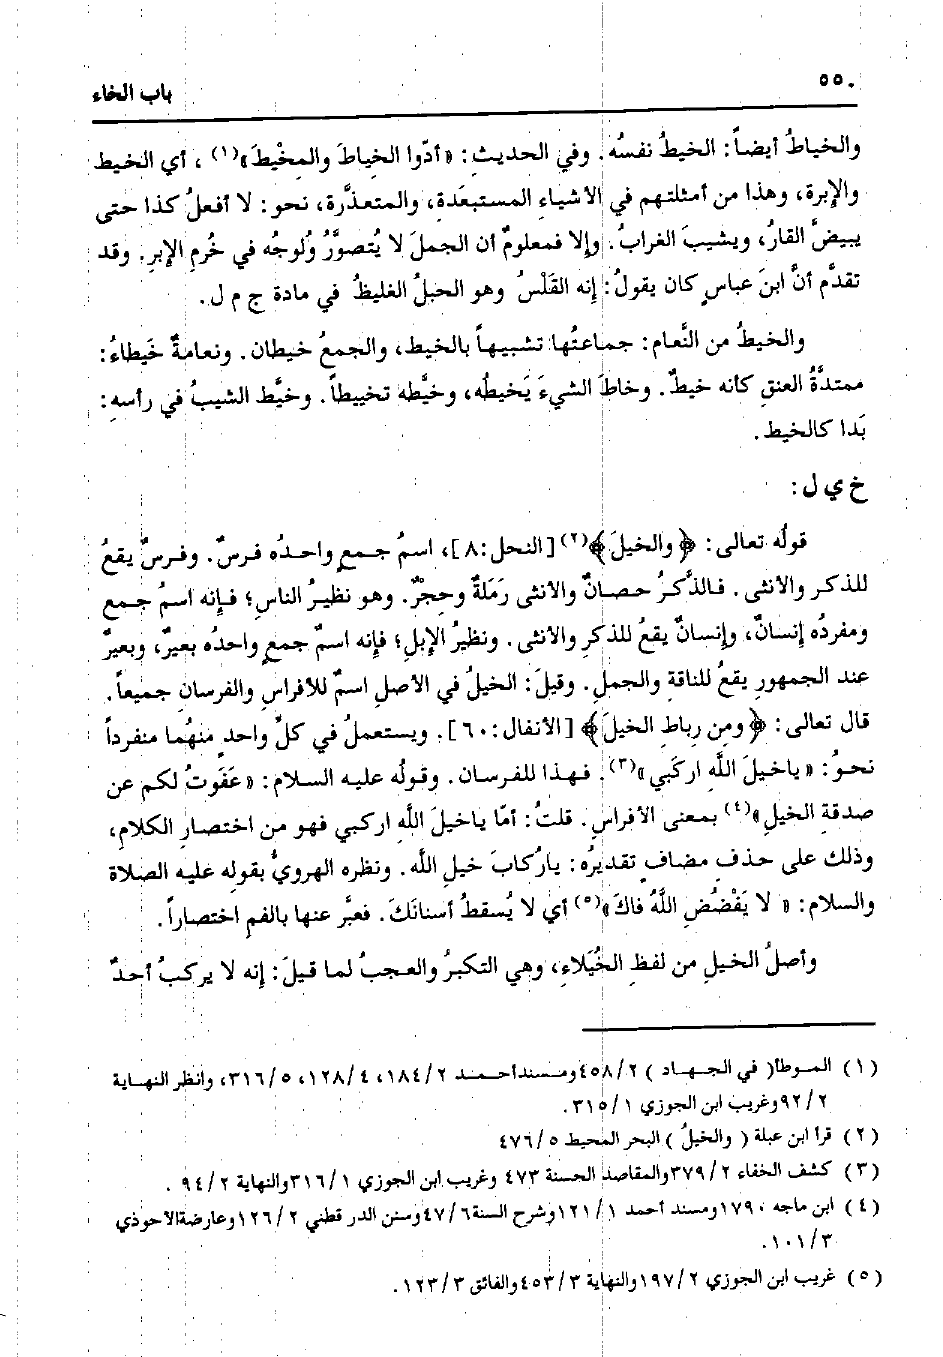 ٥٥٠
باب الخاء
والخياطُ أيضاً: الخيطُ نفسُه. وفي الحديثِ: «أدّوا الخِياطَ والمِخْيطَ»(١) ، أي الخيط
والإبرة، وهذا من أمثلتهم في الأشياءِ المستبعَدةِ، والمتعذَّرة، نحو: لا أفعلُ كذا حتى
يبيضَّ القارُ، ويشيبَ الغرابُ. وإلا فمعلومٌ أن الجملَ لا يُتصوَّرُ وُلوجُه في خُرمِ الإبرِ. وقد
تقدَّم أنَّ ابنَ عباسٍ كان يقولُ: إنه القَلْسُ وهو الحبلُ الغليظُ في مادة ج م ل.
والخيطُ من النَّعام: جماعتُها تشبيهاً بالخيط، والجمعُ خيطان. ونعامةٌ خَيطاءُ:
ممتدَّةُ العنقِ كأنه خيطٌ. وخاطَ الشيءَ يَخيطُه، وخيَّطه تخييطاً. وخيَّط الشيبُ في رأسهِ:
بَدا كالخيط.
خ ي ل:
قولُه تعالى: ﴿والخيلَ﴾(٢) [النحل:٨]، اسمُ جمعٍ واحدُه فرسٌ. وفرسٌ يقعُ
للذكر والأنثى. فالذَّكرُ حصانٌ والأنثى رَمَلةٌ وحِجرٌ. وهو نظيرُ الناسِ؛ فإنه اسمُ جمع
ومفردُه إنسانٌ، وإنسانٌ يقعُ للذكرِ والأنثى. ونظيرُ الإبلِ؛ فإنه اسمٌ جمعٍ واحدُه بعيرٌ، وبعيرٌ
عند الجمهورِ يقعُ للناقة والجملِ. وقيلَ: الخيلُ في الأصلِ اسمٌ للأفراسِ والفرسانِ جميعاً.
قال تعالى: ﴿ومِن رِباطِ الخيلَ﴾ [الأنفال:٦٠]. ويستعملُ في كلِّ واحدٍ منهُما منفرداً
نحوُ: «ياخيلَ اللَّهِ اركَبي»(٣). فهذا للفرسان. وقولُه عليه السلام: «عَفَوتُ لكم عن
صدقةِ الخيلِ»(٤) بمعنى الأفراسِ. قلتُ: أمّا ياخيلَ اللَّهِ اركبي فهو من اختصارِ الكلامِ،
وذلك على حذفِ مضافٍ تقديرُه: ياركابَ خيلِ اللَّه. ونظره الهرويُّ بقولهِ عليه الصلاة
والسلام: «لا يَفْضُضِ اللَّهُ فاكَ»(٥) أي لا يُسقطُ أسنانَكَ. فعبَّر عنها بالفمِ اختصاراً.
وأصلُ الخيلِ من لفظِ الخُيَلاءِ، وهي التكبرُ والعجبُ لما قيلَ: إنه لا يركبُ أحدٌ
(١) الموطأ( في الجهاد ) ٤٥٨/٢ومسندأحمد ١٨٤/٢، ١٢٨/٤، ٣١٦/٥، وانظر النهاية
٩٢/٢وغريب ابن الجوزي ٣١٥/١.
(٢) قرأ ابن عبلة ( والخيلُ ) البحر المحيط ٤٧٦/٥
(٣) كشف الخفاء ٣٧٩/٢والمقاصد الحسنة ٤٧٣ وغريب ابن الجوزي ٣١٦/١والنهاية ٩٤/٢ .
(٤) ابن ماجه ١٧٩٠ومسند أحمد ١٢١/١وشرح السنة٤٧/٦وسنن الدر قطني ١٢٦/٢وعارضةالأحوذي
١٠١/٣.
(٥) غريب ابن الجوزي ١٩٧/٢والنهاية ٤٥٣/٣والفائق ١٢٣/٣.